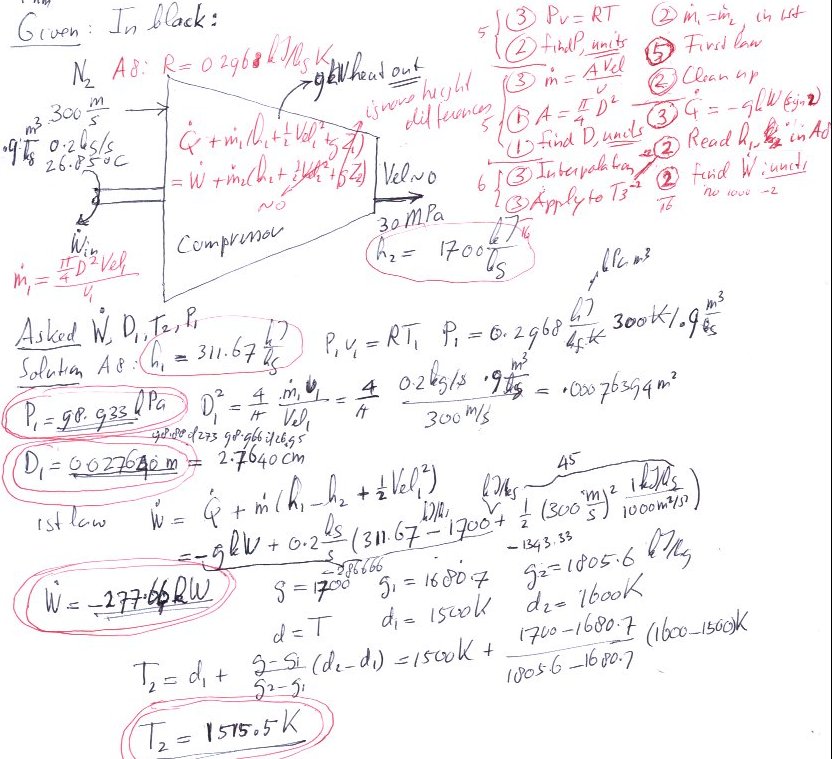 Given: In black:
N₂ A8: R = 0.2968 kJ/kg K
9kW heat out
ignore height differences
300 m/s
.9 m³/kg 0.2 kg/s
26.85°C
Q̇ + ṁ₁(h₁ + ½Vel₁² + gZ₁)
= Ẇ + ṁ₂(h₂ + ½Vel₂² + gZ₂)
~0
Compressor
Ẇin
Vel~0
30 MPa
h₂ = 1700 kJ/kg
ṁ₁ = π/4 D² Vel₁ / v₁
5
③ Pv = RT
② find P, units
5
③ ṁ = A Vel / v
① A = π/4 D²
① find D, units
6
③ Interpolation
③ Apply to T3⁻²
② ṁ₁ = ṁ₂, in 1st
⑤ First law
② Clean up
③ Q̇ = -9kW (sign 2)
② Read h₁, in A8
② find Ẇ units
16 no 1000 -2
Asked Ẇ, D₁, T₂, P₁
Solution A8: h₁ = 311.67 kJ/kg P₁v₁ = RT₁ P₁ = 0.2968 kJ/kg K 300K/.9 m³/kg
kPa m³
P₁ = 98.933 kPa D₁² = 4/π ṁ₁v₁/Vel₁ = 4/π 0.2 kg/s .9 m³/kg / 300 m/s = .00076394 m²
D₁ = 0.027640 m = 2.7640 cm
1st law Ẇ = Q̇ + ṁ(h₁ - h₂ + ½Vel₁²)
45
= -9kW + 0.2 kg/s (311.67 kJ/kg - 1700 kJ/kg + ½ (300 m/s)² 1 kJ/kg / 1000 m²/s²)
-1343.33
-268.666
Ẇ = -277.66 kW
g = 1700 g₁ = 1680.7 g₂ = 1805.6 kJ/kg
d = T d₁ = 1500K d₂ = 1600K
T₂ = d₁ + (g - g₁)/(g₂ - g₁) (d₂ - d₁) = 1500K + (1700 - 1680.7)/(1805.6 - 1680.7) (1600 - 1500)K
T₂ = 1515.5 K